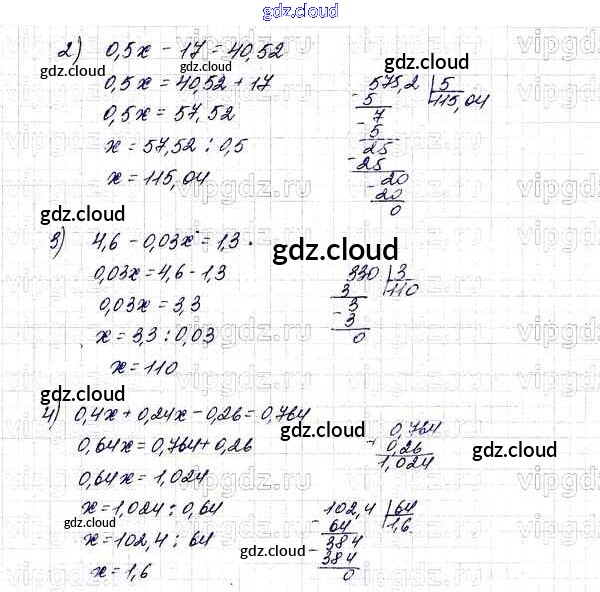 gdz.cloud
2) 0,5x - 17 = 40,52
0,5x = 40,52 + 17
0,5x = 57,52
x = 57,52 : 0,5
x = 115,04
575,2 | 5
- 5 | 115,04
7
- 5
25
- 25
20
- 20
0
3) 4,6 - 0,03x = 1,3.
0,03x = 4,6 - 1,3
0,03x = 3,3
x = 3,3 : 0,03
x = 110
330 | 3
3 | 110
3
- 3
0
4) 0,4x + 0,24x - 0,26 = 0,764
0,64x = 0,764 + 0,26
0,64x = 1,024
x = 1,024 : 0,64
x = 102,4 : 64
x = 1,6
0,764
+ 0,26
1,024
102,4 | 64
- 64 | 1,6
384
- 384
0
gdz.cloud
gdz.cloud
gdz.cloud
gdz.cloud
gdz.cloud
gdz.cloud
gdz.cloud
gdz.cloud
gdz.cloud
gdz.cloud
gdz.cloud
vipgdz.ru